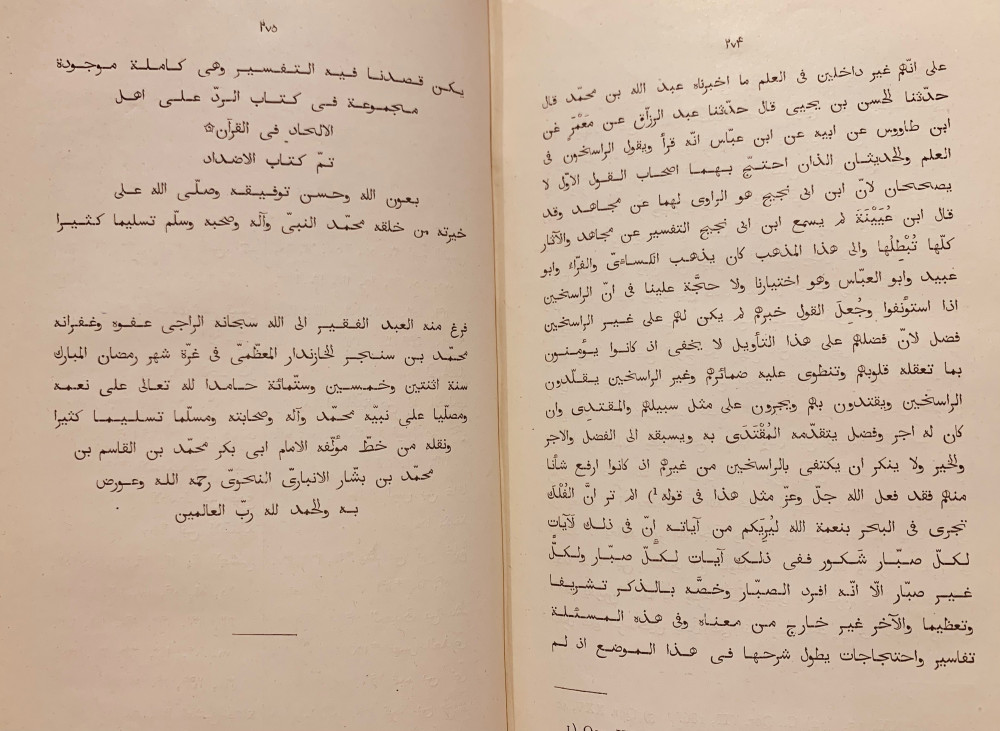 ٢٧٤
على انّهم غير داخلين فى العلم ما اخبرناه عبد الله بن محمّد قال
حدّثنا الحسن بن يحيى قال حدّثنا عبد الرزّاق عن مَعْمَرٍ عن
ابن طاووس عن ابيه عن ابن عبّاس انّه قرأ ويقول الراسخون فى
العلم والحديثان الذان احتجّ بهما اصحاب القول الاوّل لا
يصححان لانّ ابن ابى نجيح هو الراوى لهما عن مجاهد وقد
قال ابن عُيَيْنَة لم يسمع ابن ابى نجيح التفسير عن مجاهد والآثار
كلّها تُبْطِلُها والى هذا المذهب كان يذهب الكسائىّ والفرّاء وابو
عبيد وابو العبّاس وهو اختيارنا ولا حجّة علينا فى انّ الراسخين
اذا استؤنفوا وجُعِلَ القول خبرهم لم يكن لهم على غير الراسخين
فضل لانّ فضلهم على هذا التأويل لا يخفى اذ كانوا يؤمنون
بما تعقله قلوبهم وتنطوى عليه ضمائرهم وغير الراسخين يقلّدون
الراسخين ويقتدون بهم ويجرون على مثل سبيلهم والمقتدى وان
كان له اجر وفضل يتقدّمه المُقْتَدَى به ويسبقه الى الفضل والاجر
والخير ولا ينكر ان يكتفى بالراسخين من غيرهم اذ كانوا ارفع شأنا
منهم فقد فعل الله جلّ وعزّ مثل هذا فى قوله ¹) الم تر انَّ الفُلْكَ
تجرى فى البحر بنعمة الله ليُرِيَكم من آياته انّ فى ذلك لَآيات
لكلّ صبّار شَكور ففى ذلك آيات لكلّ صبّار ولكلّ
غير صبّار الّا انّه افرد الصبّار وخصَّه بالذكر تشريفا
وتعظيما والآخر غير خارج من معناه وفى هذه المسئلة
تفاسير واحتجاجات يطول شرحها فى هذا الموضع اذ لم
٢٧٥
يكن قصدنا فيه التفسير وهى كاملة موجودة
مجموعة فى كتاب الردّ على اهل
الالحاد فى القرآن۞
تمّ كتاب الاضداد
بعون الله وحسن توفيقه وصلّى الله على
خيرته من خلقه محمّد النبىّ وآله وصحبه وسلّم تسليما كثيرا
فرغ منه العبد الفقير الى الله سبحانه الراجى عفوه وغفرانه
محمّد بن سنجر الخازندار المعظّمىّ فى غرّة شهر رمضان المبارك
سنة اثنتين وخمسين وستّمائة حامدا لله تعالى على نعمه
ومصلّيا على نبيّه محمّد وآله وصحابته ومسلّما تسليما كثيرا
ونقله من خطّ مؤلّفه الامام ابى بكر محمّد بن القاسم بن
محمّد بن بشّار الانبارىّ النحوىّ رحمه الله وعورض
به والحمد لله ربّ العالمين